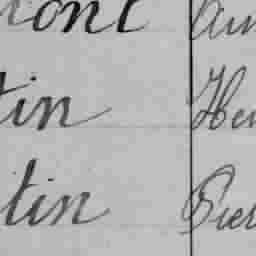 ront Aur
tin Hen
tin Pier